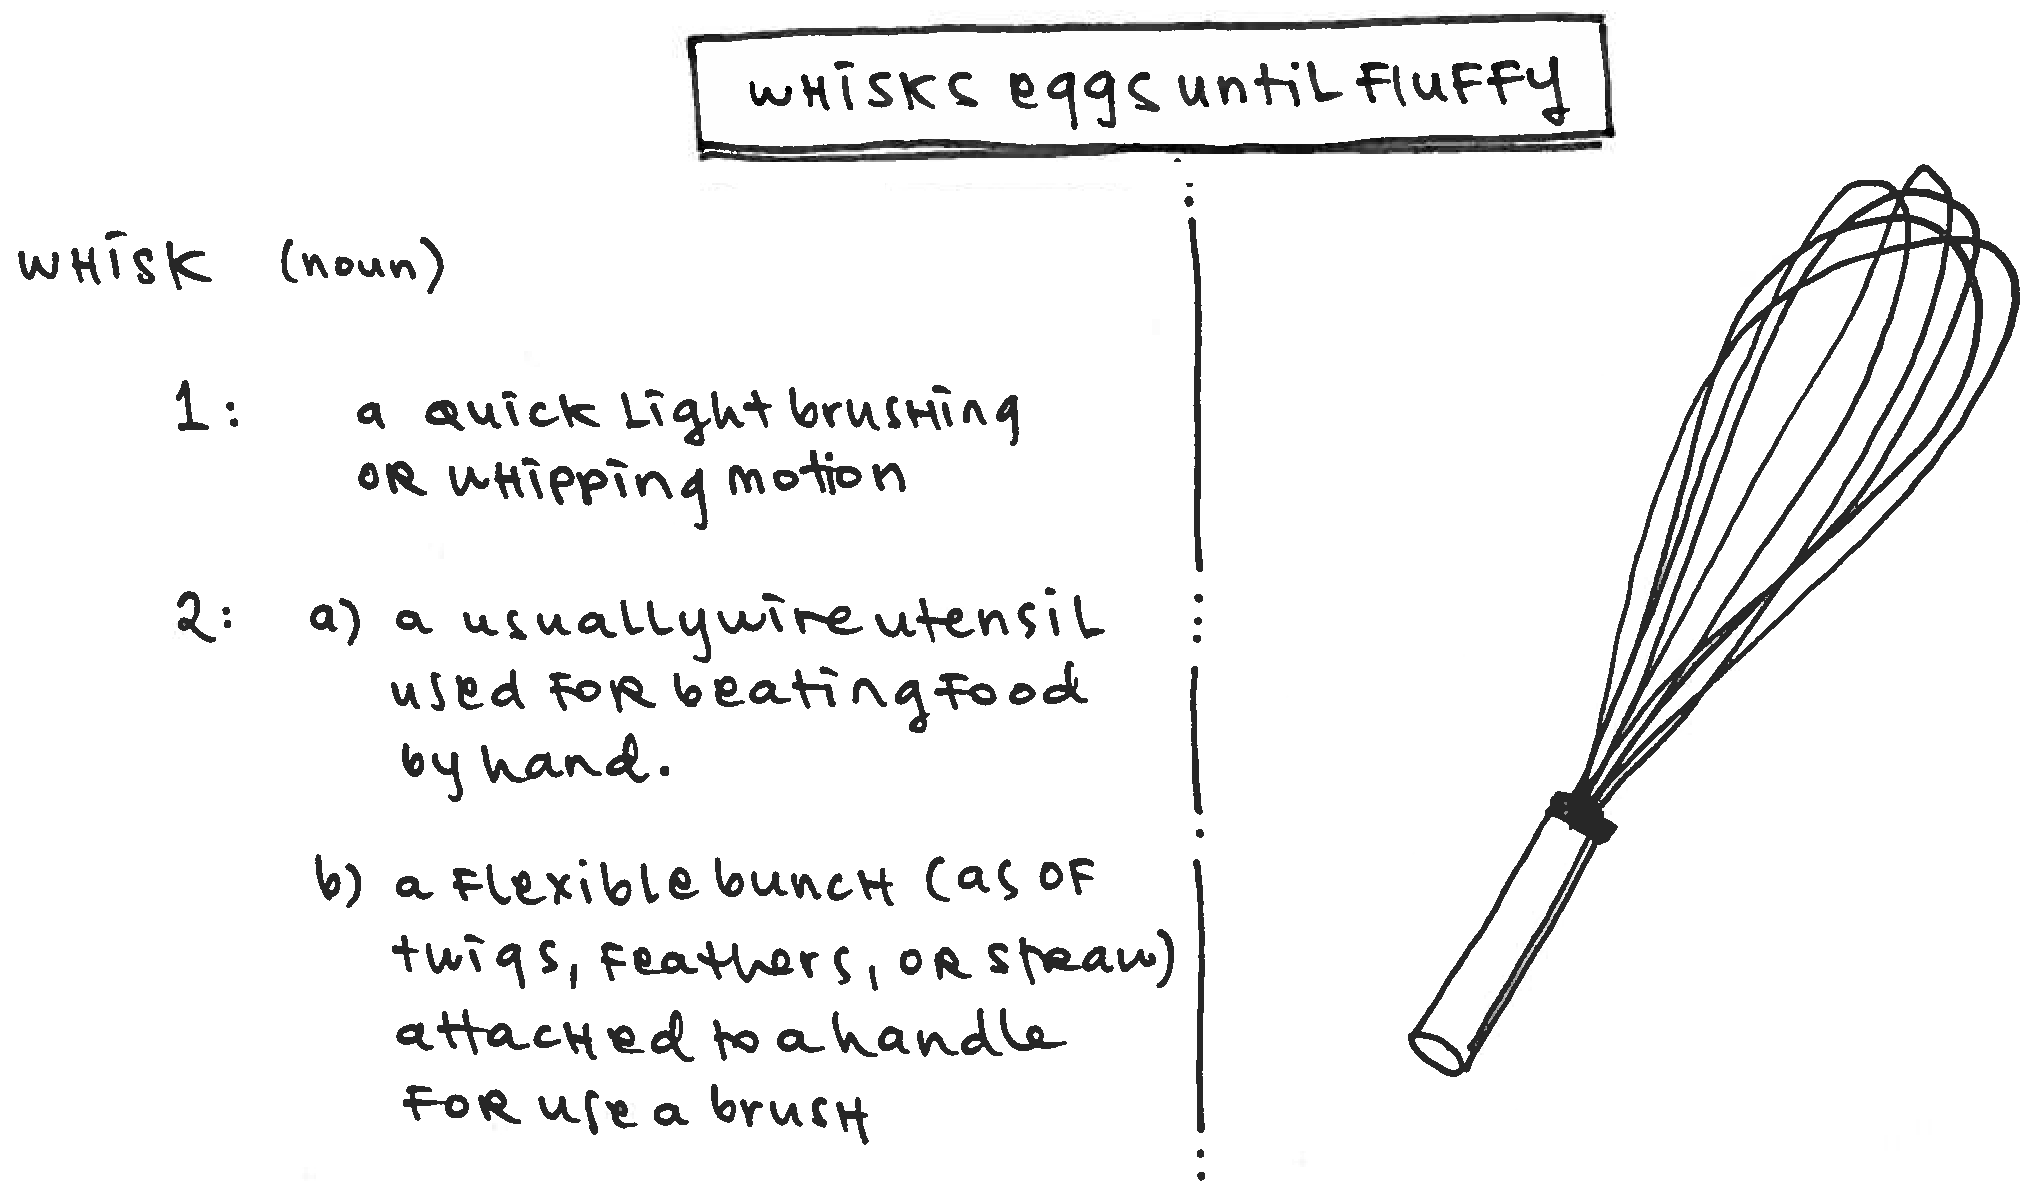 WHISKS eggs until FluFFy
WHISK (noun)
1: a QUICK Light brusHing
OR wHipping motion
2: a) a usually wire utensil
used FOR beating Food
by hand.
b) a FLexible buncH (as OF
twigs, Feathers, OR straw)
attacHed to a handle
FOR use a brusH